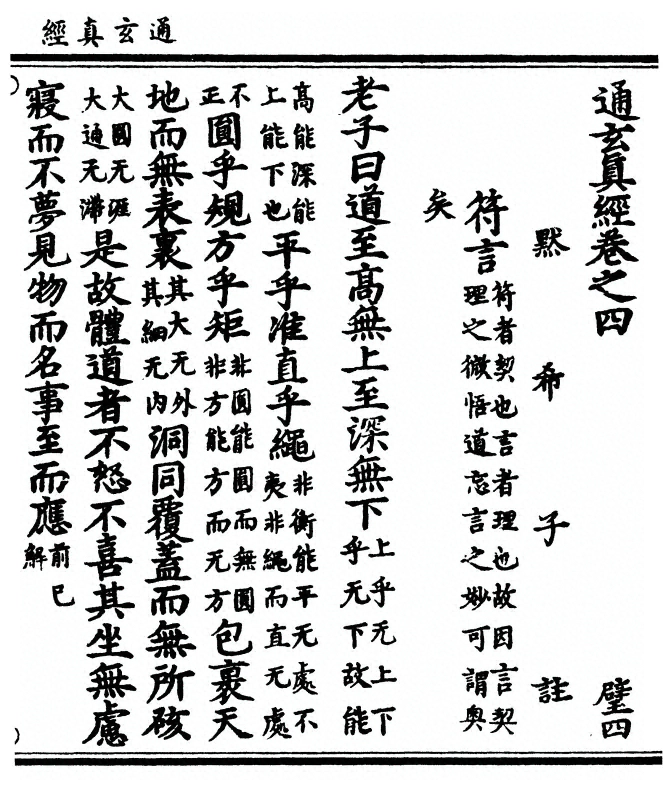 通玄真經
通玄真經卷之四 璧四
默希子註
符言 符者契也言者理也故因言契理之微悟道忘言之妙可謂奧
矣
老子曰道至高無上至深無下 上乎无上下乎无下故能
高能深能上能下也 平乎准直乎繩 非衡能平无處不夷非繩而直无處
不正 圓乎規方乎矩 非圓能圓而無圓非方能方而无方 包裹天
地而無表裏 其大无外其細无內 洞同覆蓋而無所硋
大圓无涯大通无滯 是故體道者不怒不喜其坐無慮
寢而不夢見物而名事至而應 前已解